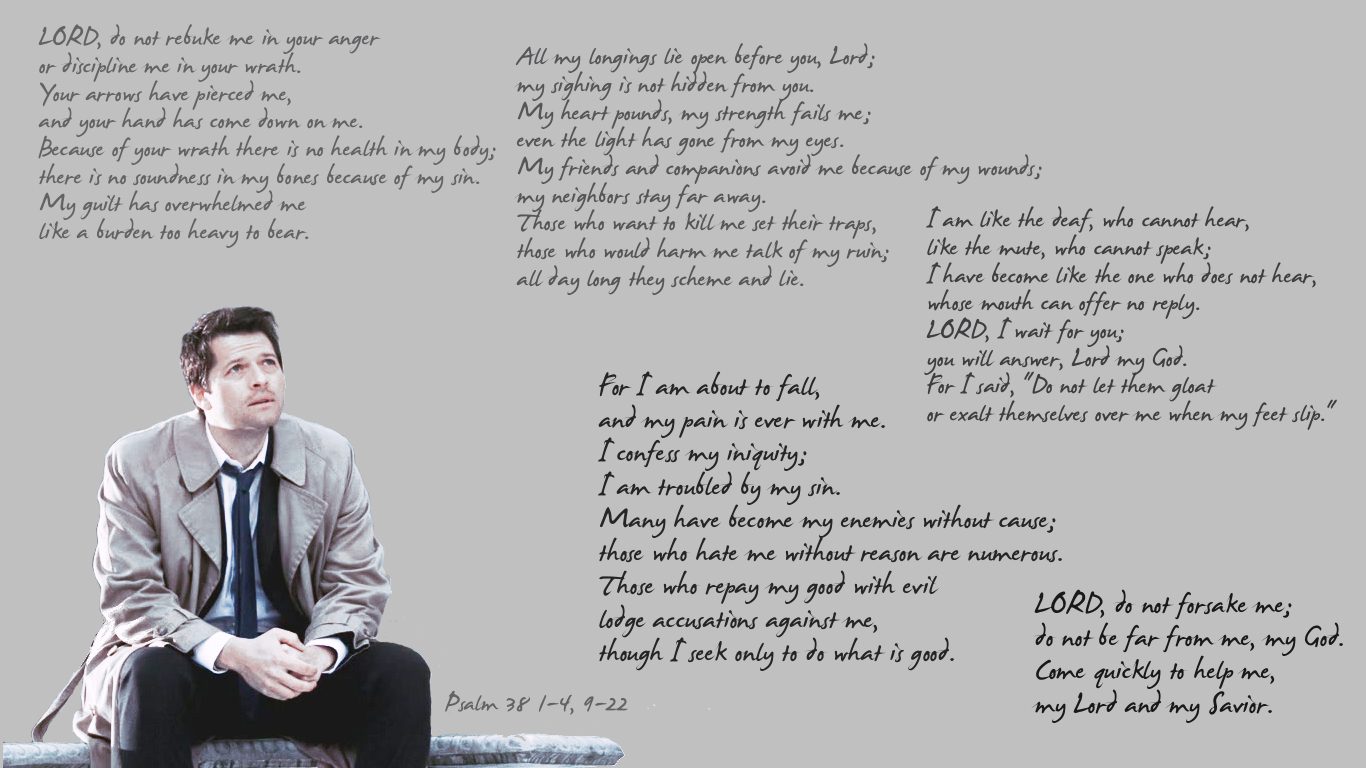 LORD, do not rebuke me in your anger
or discipline me in your wrath.
Your arrows have pierced me,
and your hand has come down on me.
Because of your wrath there is no health in my body;
there is no soundness in my bones because of my sin.
My guilt has overwhelmed me
like a burden too heavy to bear.
All my longings lie open before you, Lord;
my sighing is not hidden from you.
My heart pounds, my strength fails me;
even the light has gone from my eyes.
My friends and companions avoid me because of my wounds;
my neighbors stay far away.
Those who want to kill me set their traps,
those who would harm me talk of my ruin;
all day long they scheme and lie.
I am like the deaf, who cannot hear,
like the mute, who cannot speak;
I have become like the one who does not hear,
whose mouth can offer no reply.
LORD, I wait for you;
you will answer, Lord my God.
For I said, "Do not let them gloat
or exalt themselves over me when my feet slip."
For I am about to fall,
and my pain is ever with me.
I confess my iniquity;
I am troubled by my sin.
Many have become my enemies without cause;
those who hate me without reason are numerous.
Those who repay my good with evil
lodge accusations against me,
though I seek only to do what is good.
LORD, do not forsake me;
do not be far from me, my God.
Come quickly to help me,
my Lord and my Savior.
Psalm 38 1-4, 9-22